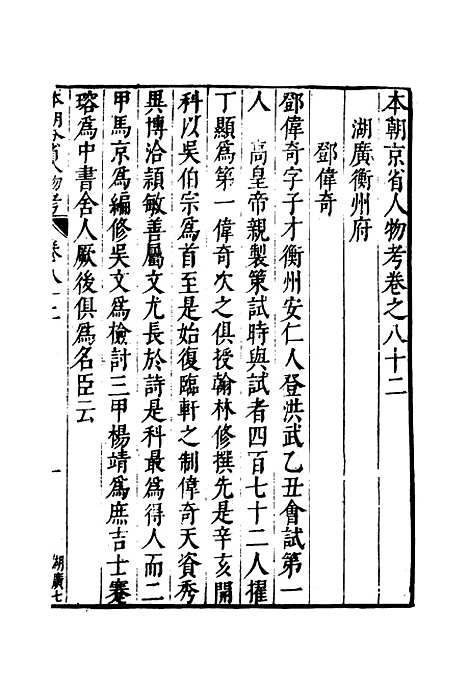 本朝京省人物考卷之八十二
湖廣衡州府
鄧偉奇
鄧偉奇字子才衡州安仁人登洪武乙丑會試第一
人　高皇帝親製策試時與試者四百七十二人擢
丁顯爲第一偉奇次之俱授翰林修撰先是辛亥開
科以吳伯宗爲首至是始復臨軒之制偉奇天資秀
異博洽穎敏善屬文尤長於詩是科最爲得人而二
甲馬京爲編修吳文爲檢討三甲楊靖爲庶吉士蹇
瑢爲中書舍人厥後俱爲名臣云
本朝分省人物考
卷八十二
一
湖廣七